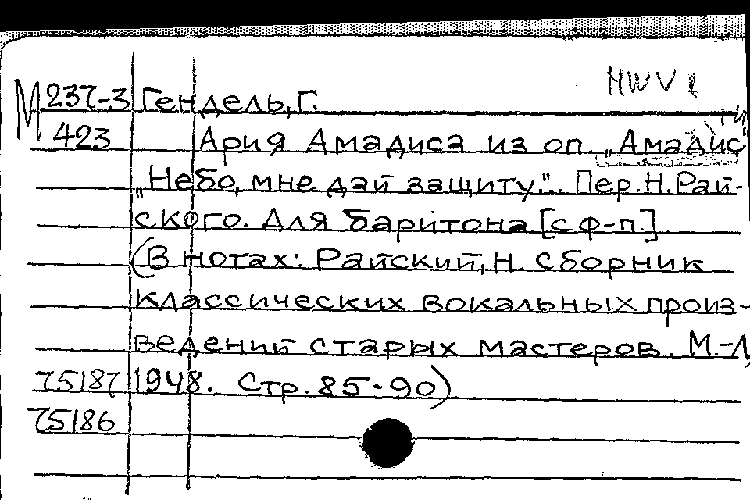 HWV
М 237-3 Гендель, Г.
423 Ария Амадиса из оп. „Амадис"
„Небо, мне дай защиту". Пер. Н. Рай-
ского. Для баритона [с ф-п.]
(В нотах: Райский, Н. Сборник
классических вокальных произ-
ведений старых мастеров. М.-Л,
75187 1948. Стр. 85-90)
75186